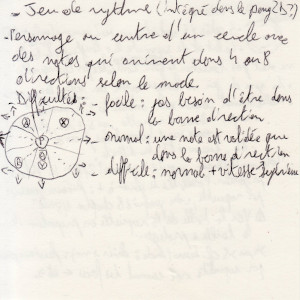 - Jeu de rythme (intégré dans le pong2D?)
- Personnage au centre d'un cercle avec
des notes qui arrivent dans 4 ou 8
directions selon le mode.
Difficultés: - facile: pas besoin d'être dans
la bonne direction
- normal: une note est validée que
dans la bonne direction
- difficile: normal + vitesse supérieure
P